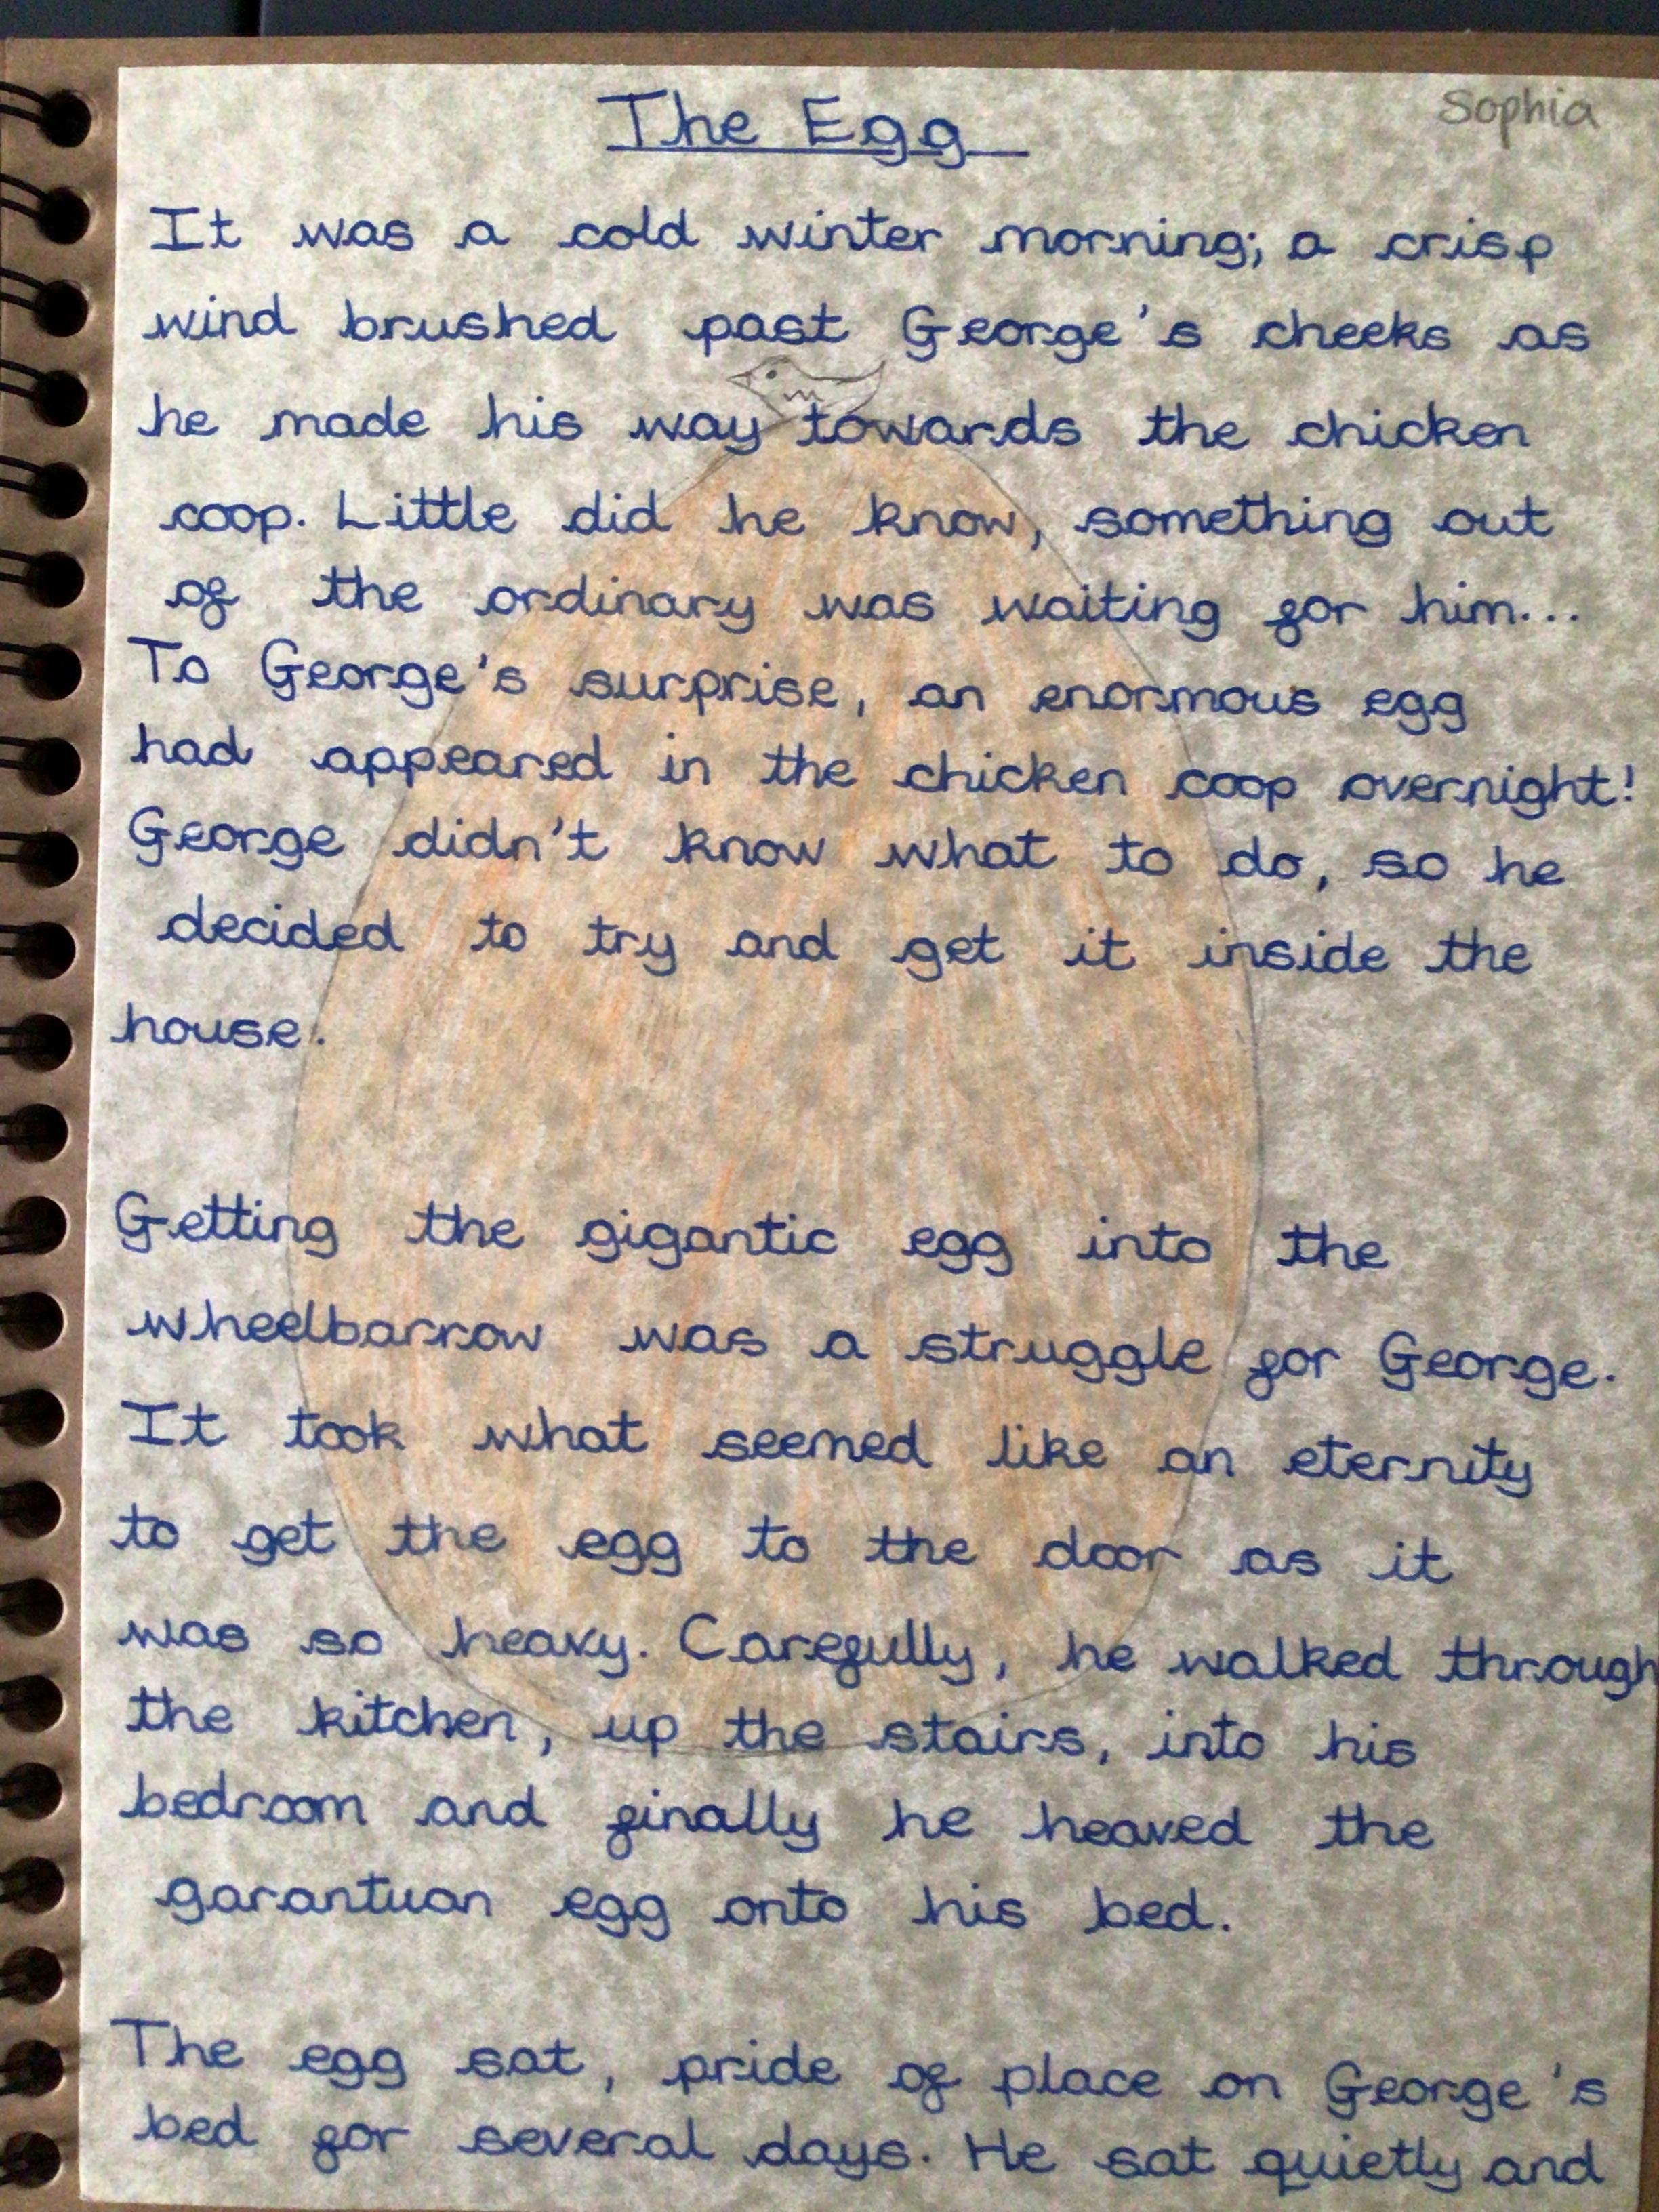 The Egg
Sophia
It was a cold winter morning; a crisp
wind brushed past George's cheeks as
he made his way towards the chicken
coop. Little did he know, something out
of the ordinary was waiting for him...
To George's surprise, an enormous egg
had appeared in the chicken coop overnight!
George didn't know what to do, so he
decided to try and get it inside the
house.
Getting the gigantic egg into the
wheelbarrow was a struggle for George.
It took what seemed like an eternity
to get the egg to the door as it
was so heavy. Carefully, he walked through
the kitchen, up the stairs, into his
bedroom and finally he heaved the
garantuan egg onto his bed.
The egg sat, pride of place on George's
bed for several days. He sat quietly and